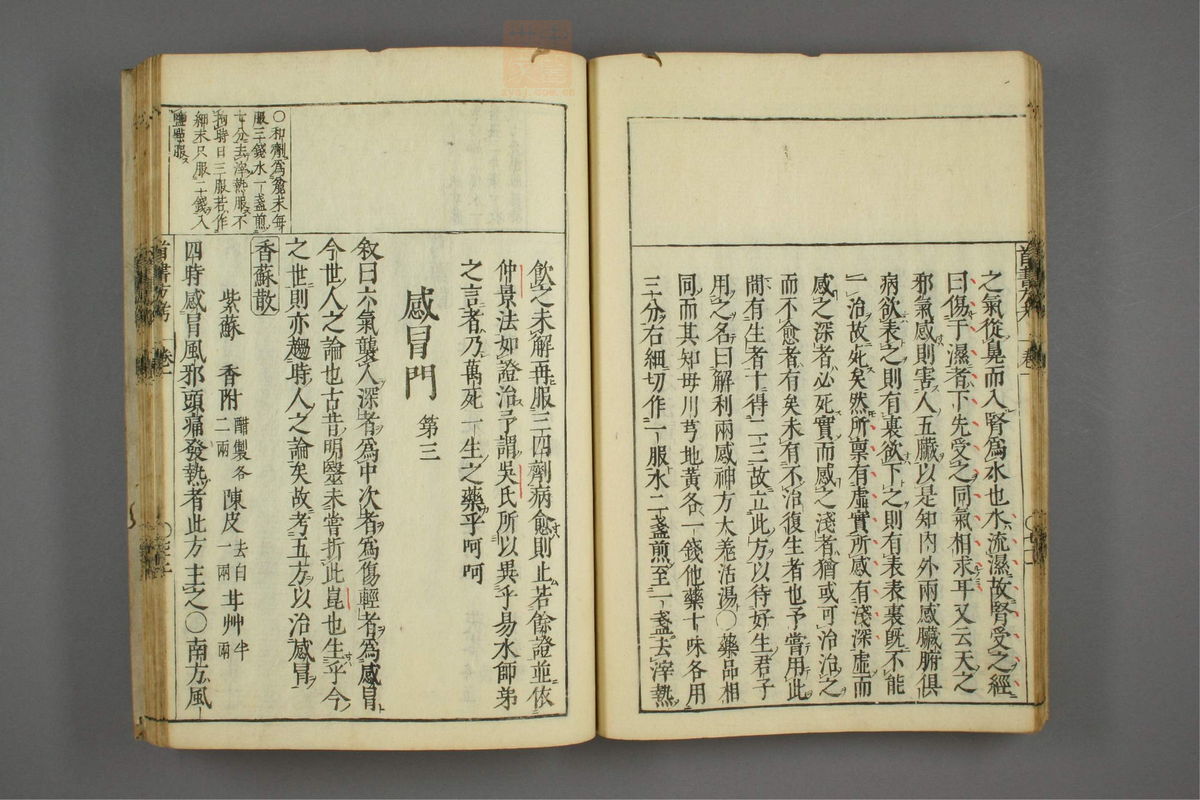 之氣從鼻而入腎爲水也水流濕故腎受之經
曰傷于濕者下先受之同氣相求耳又云天之
邪氣感則害人五臟以是知内外兩感臟腑俱
病欲表之則有裏欲下之則有表表裏既不能
一治故死矣然所禀有虛實所感有淺深虛而
感之深者必死實而感之淺者猶或可治治之
而不愈者有矣未有不治復生者也予嘗用此
間有生者十得二三故立此方以待好生君子
用之名曰解利兩感神方大羗活湯〇藥品相
同而其知母川芎地黃各一錢他藥十味各用
三分右細切作一服水二盞煎至一盞去滓熱
飲之未解再服三四劑病愈則止若餘證並依
仲景法如證治予謂吳氏所以異乎易水師弟
之言者乃萬死一生之藥乎呵呵
感冒門 第三
叙曰六氣襲人深者爲中次者爲傷輕者爲感冒
今世人之論也古昔明醫未嘗折此崑也生乎今
之世則亦趨時人之論矣故考五方以治感冒
香蘇散
紫蘇 香附 二兩 醋製各 陳皮 一兩 去白 甘艸 半兩
四時感冒風邪頭痛發熱者此方主之〇南方風
〇和劑爲麄末每
服三錢水一盞煎
七分去滓熱服不
拘時日三服若作
細末只服二錢入
鹽點服